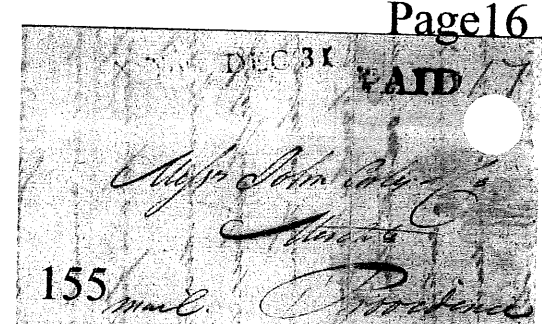 Page16
DEC 31
PAID 17
Messrs John
Merchts
155
mail. Providence